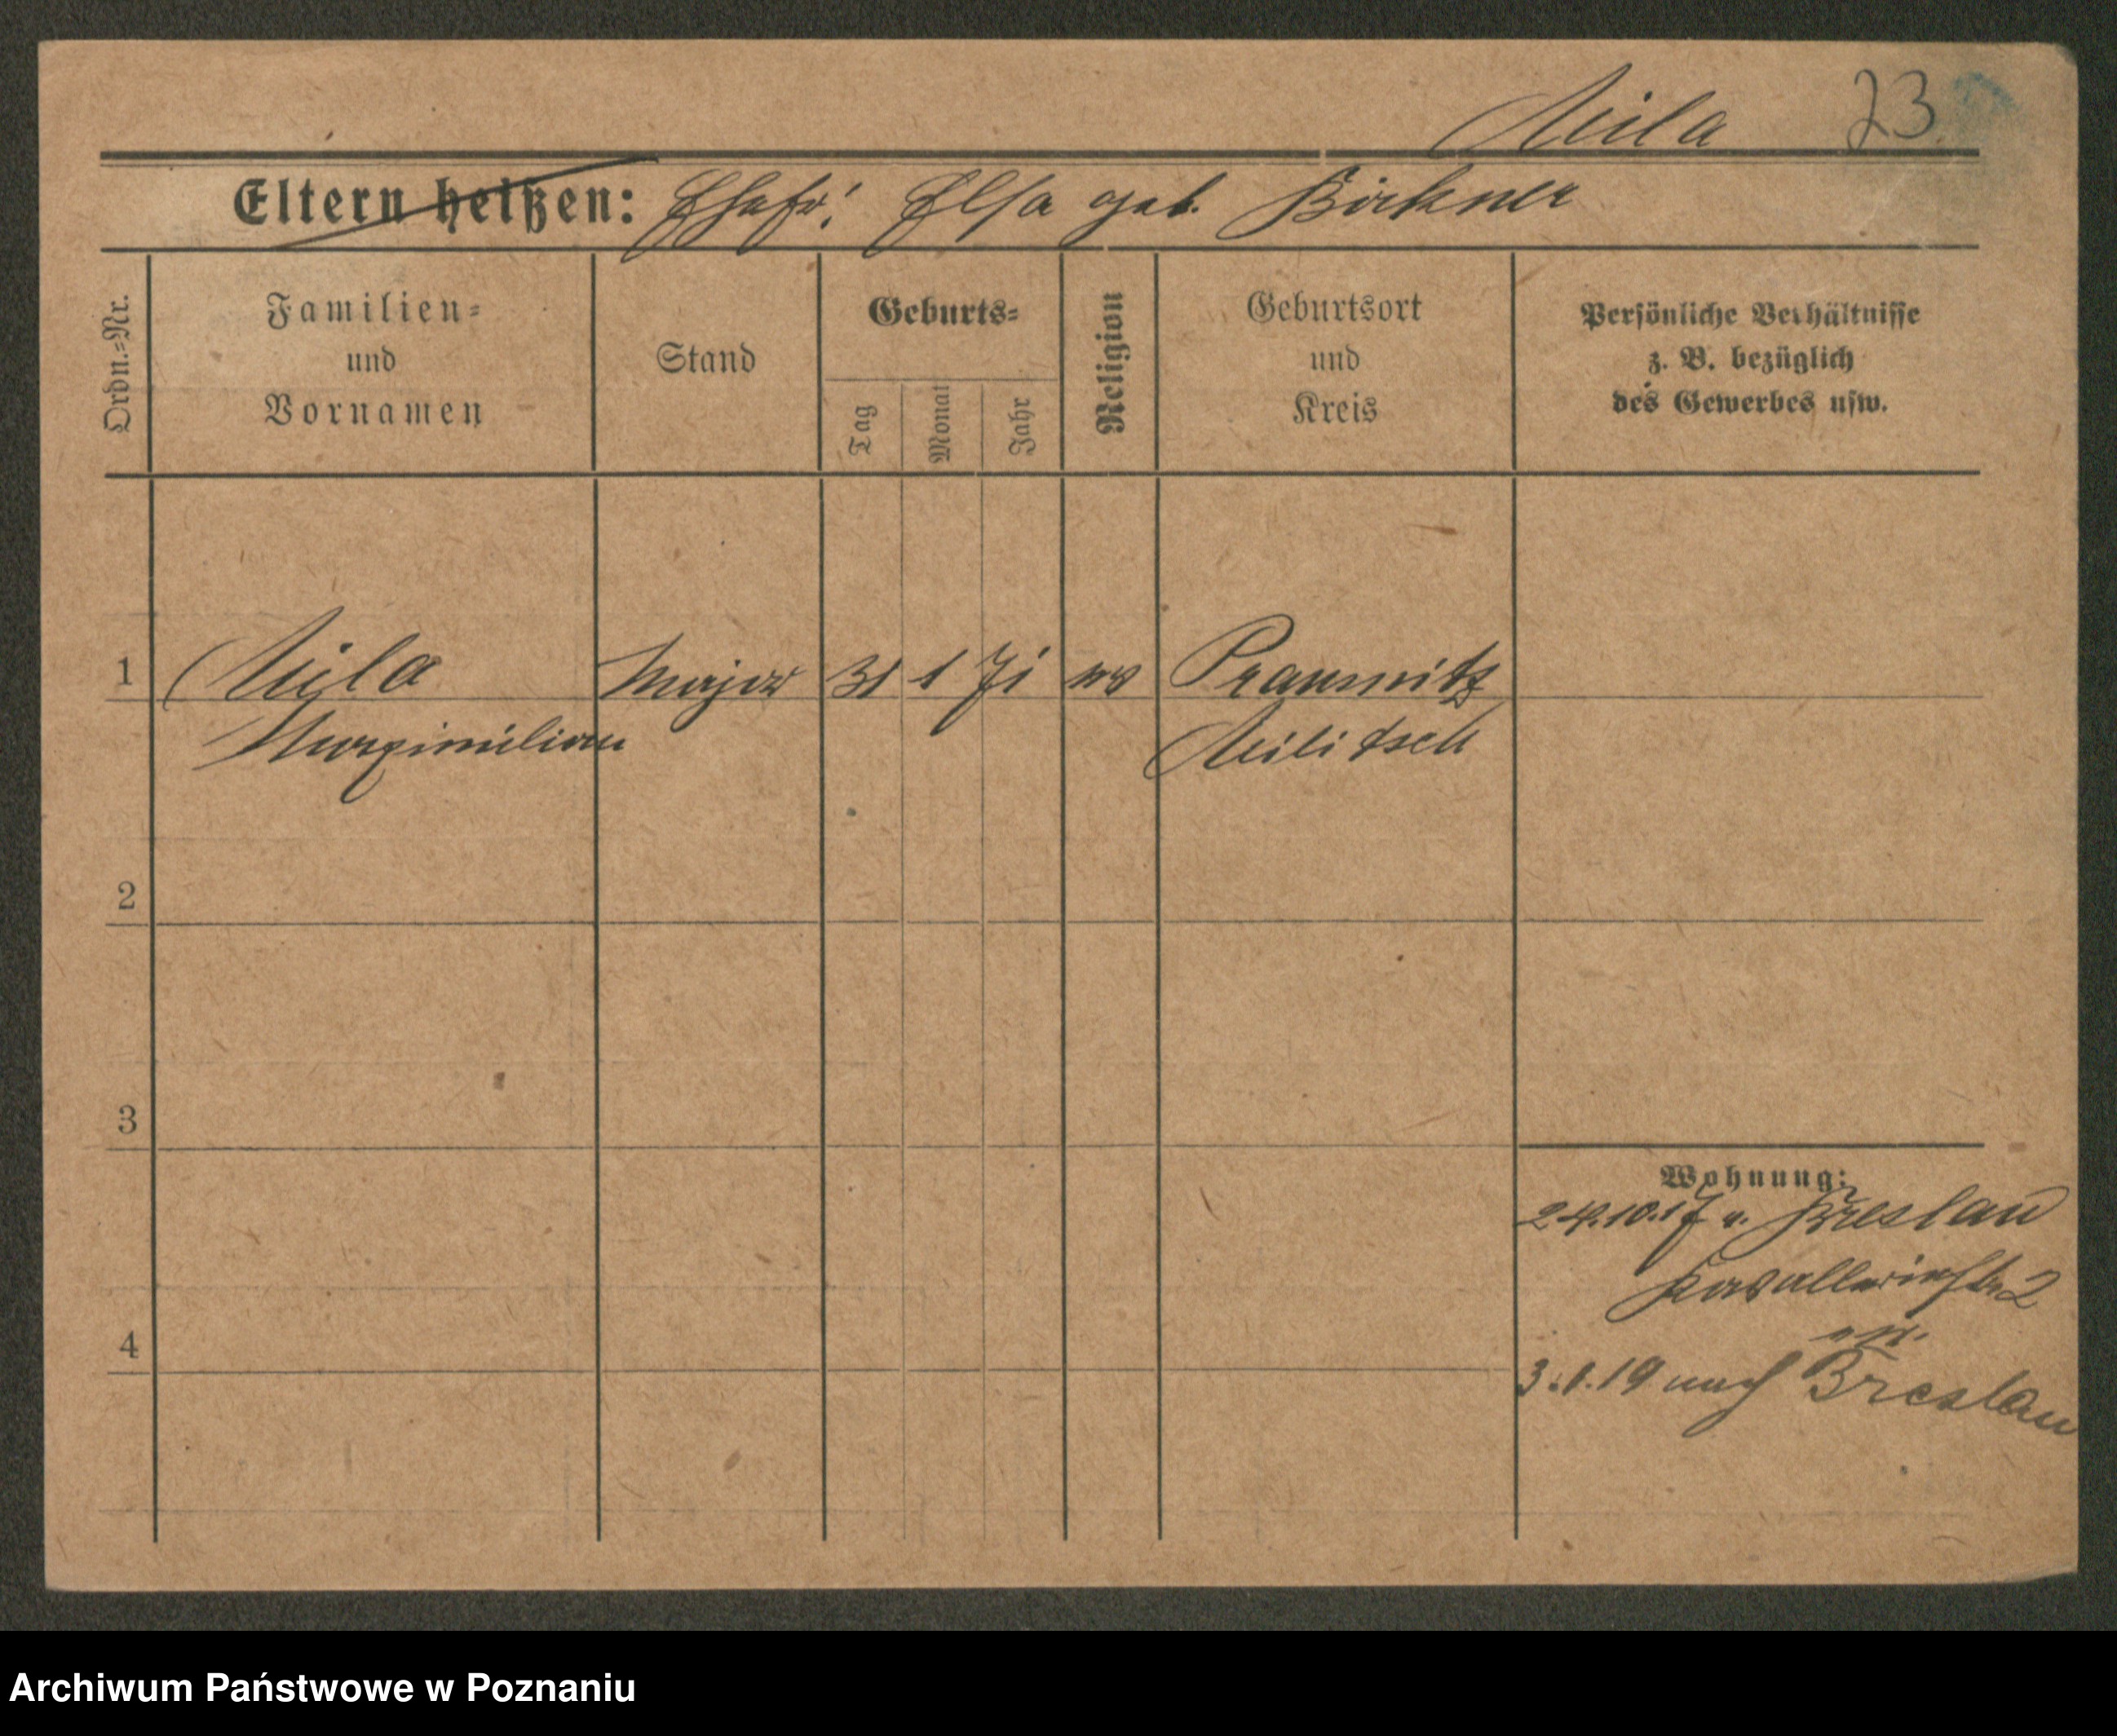 Mila 23.
Eltern heißen: Ehefr: Elsa geb. Birkner
Ordn.=Nr.
Familien=
und
Vornamen
Stand
Geburts=
Tag
Monat
Jahr
Religion
Geburtsort
und
Kreis
Persönliche Verhältnisse
z. B. bezüglich
des Gewerbes usw.
1 Mila Major 31 1 71 ev Prausnitz
Maximilian Militsch
2
3
Wohnung:
24.10.17 v. Breslau
Kavalleriestr. 2
4
3.1.19 nach Breslau
Archiwum Państwowe w Poznaniu